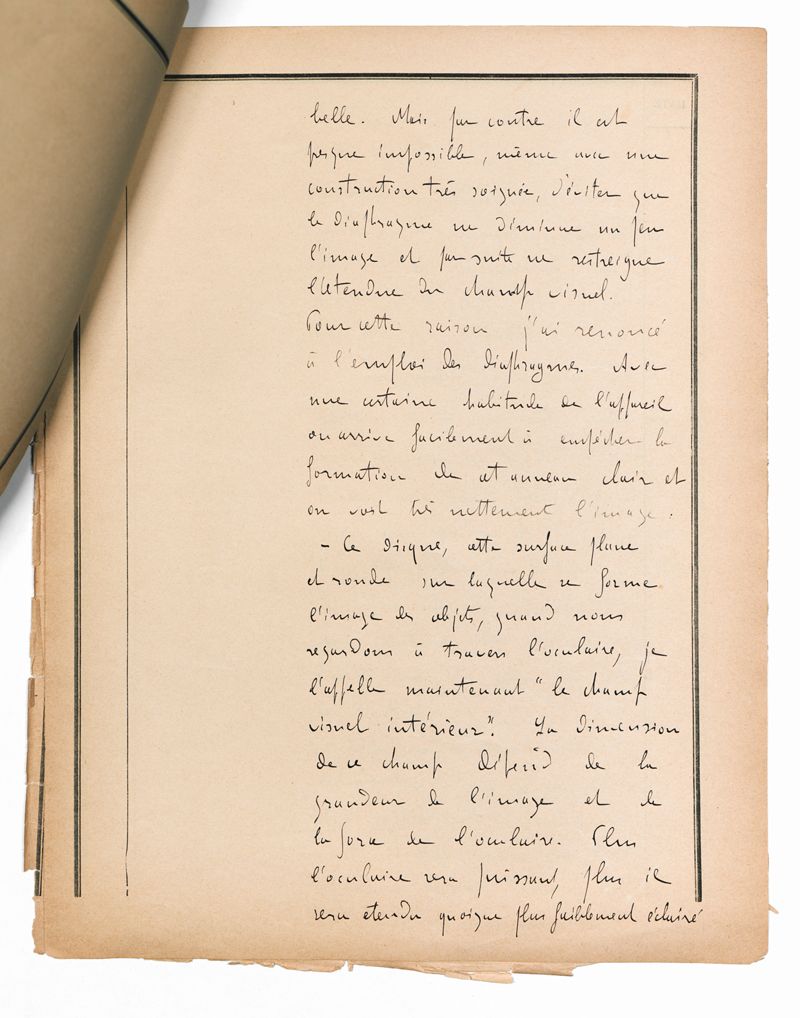 belle. Mais par contre il est
presque impossible, même avec une
construction très soignée, d'éviter que
le diaphragme ne diminue un peu
l'image et par suite ne restreigne
l'étendue du champ visuel.
Pour cette raison j'ai renoncé
à l'emploi des diaphragmes. Avec
une certaine habitude de l'appareil
on arrive facilement à empêcher la
formation de cet anneau clair et
on voit très nettement l'image.
- Ce disque, cette surface plane
et ronde sur laquelle se forme
l'image des objets, quand nous
regardons à travers l'oculaire, je
l'appelle maintenant "le champ
visuel intérieur". La dimension
de ce champ dépend de la
grandeur de l'image et de
la force de l'oculaire. Plus
l'oculaire sera puissant, plus il
sera etendu quoique plus faiblement éclairé